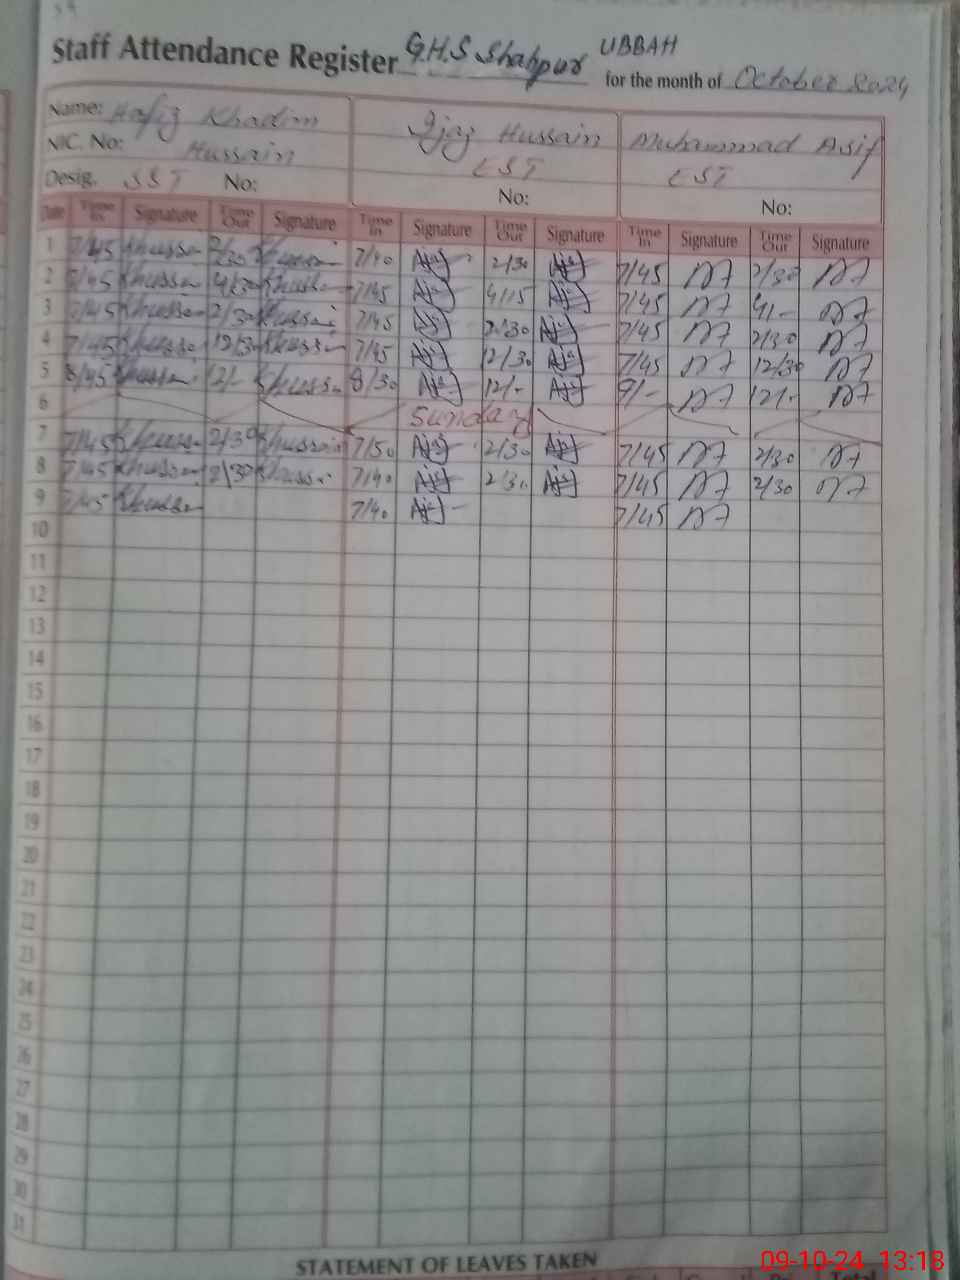 Staff Attendance Register G.H.S Shahpur UBBAH for the month of October 2024
Name: Hafiz Khadim Hussain Ijaz Hussain Muhammad Asif
NIC. No:
Desig. SST No: EST No: EST No:
Date Time In Signature Time Out Signature Time In Signature Time Out Signature Time In Signature Time Out Signature
1 7/45 Khussain 2/30 Khussain 7/40 2/30 7/45 2/30
2 7/45 Khussain 4/30 Khussain 7/45 4/15 7/45 4/-
3 7/45 Khussain 2/30 Khussain 7/45 2/30 7/45 2/30
4 7/45 Khussain 12/30 Khussain 7/45 12/30 7/45 12/30
5 8/45 Khussain 12/- Khussain 8/30 12/- 9/- 12/-
6 Sunday
7 7/45 Khussain 2/30 Khussain 7/50 2/30 7/45 2/30
8 7/45 Khussain 2/30 Khussain 7/40 2/30 7/45 2/30
9 7/45 Khussain 7/40 7/45
10
11
12
13
14
15
16
17
18
19
20
21
22
23
24
25
26
27
28
29
30
31
STATEMENT OF LEAVES TAKEN
09-10-24 13:18